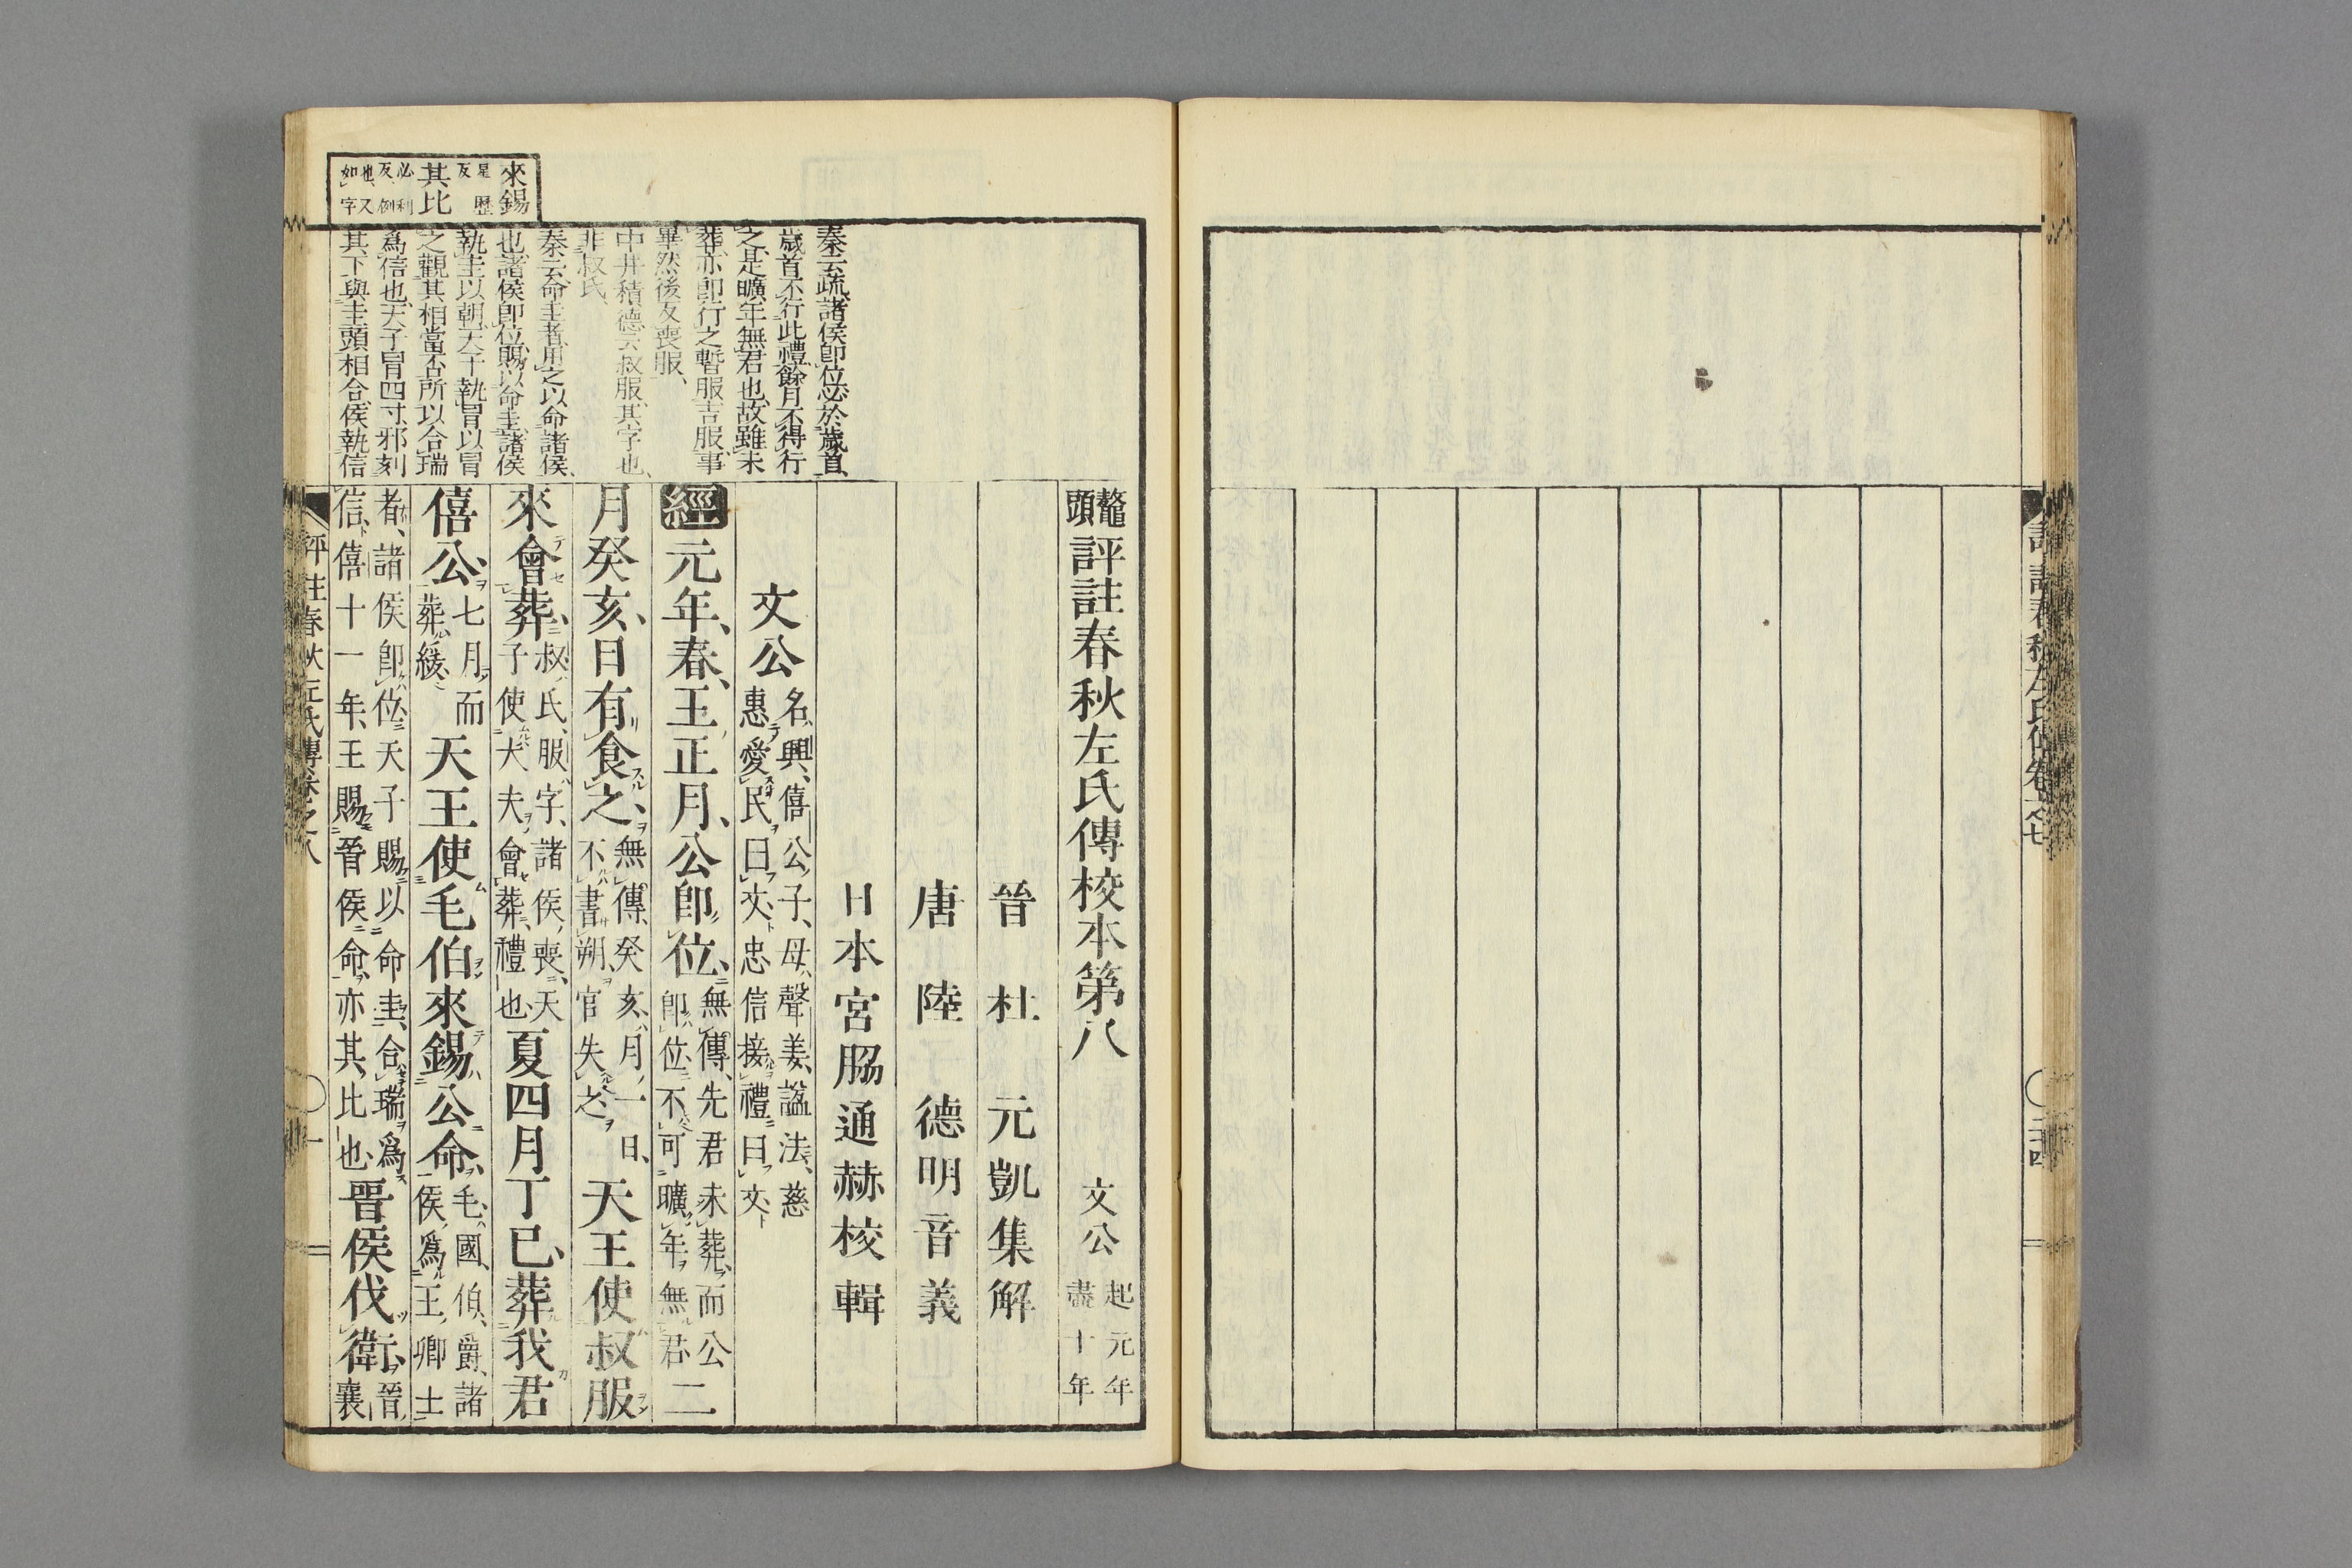 評註春秋左氏傳卷之七
二十四
鼇頭評註春秋左氏傳校本第八 文公 起元年盡十年
晉 杜 元凱集解
唐 陸 德明音義
日本宮脇通赫校輯
文公 名興、僖公子、母聲姜、諡法、慈惠愛民曰文、忠信接禮曰文
經元年、春、王正月、公卽位、無傳、先君未葬、而公卽位、不可曠年無君 二
月癸亥、日有食之、無傳、癸亥、月一日、不書朔、官失之 天王使叔服
來會葬、叔氏、服字、諸侯喪、天子使大夫會葬、禮也 夏四月丁巳、葬我君
僖公、七月而葬、緩 天王使毛伯來錫公命、毛、國、伯、爵、諸侯爲王卿士
者、諸侯卽位、天子賜以命圭、合瑞爲信、僖十一年、王賜晉侯命、亦其比也 晉侯伐衞、晉襄
秦云疏、諸侯卽位、必於歲首、
歲首不行此禮、餘月不得行
之、是曠年無君也、故雖未
葬、亦卽行之、暫服吉服、事
畢然後反喪服、
中井積德云、叔服、其字也、
非叔氏、
秦云、命圭者、用之以命諸侯
也、諸侯卽位、賜以命圭、諸侯
執圭以朝、天子執冒以冒
之、觀其相當否、所以合瑞
爲信也、天子冒四寸、邪刻
其下、與圭頭相合、侯執信
來錫 星歷反
其比 必利反、例也、又如字
評註春秋左氏傳卷之八
一